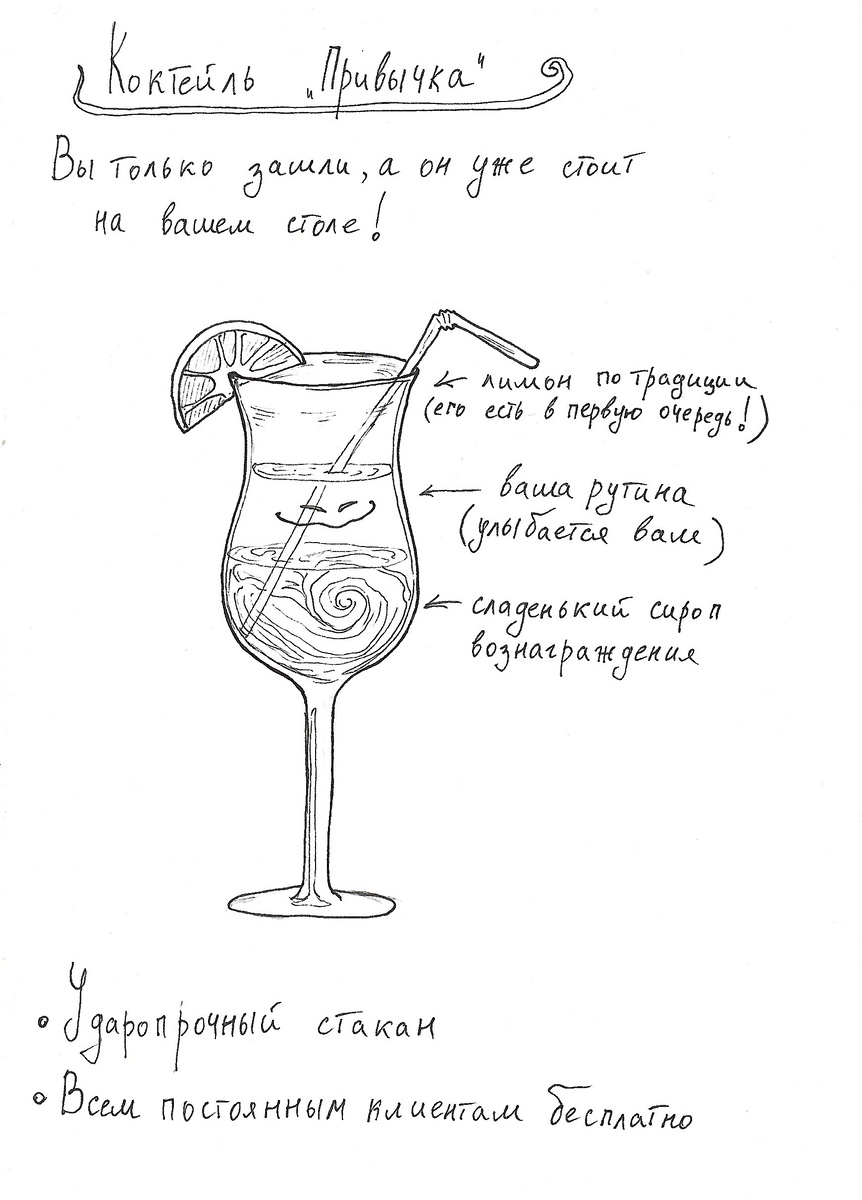 Коктейль „Привычка"
Вы только зашли, а он уже стоит
на вашем столе!
лимон по традиции
(его есть в первую очередь!)
ваша рутина
(улыбается вам)
сладенький сироп
вознаграждения
• Ударопрочный стакан
• Всем постоянным клиентам бесплатно